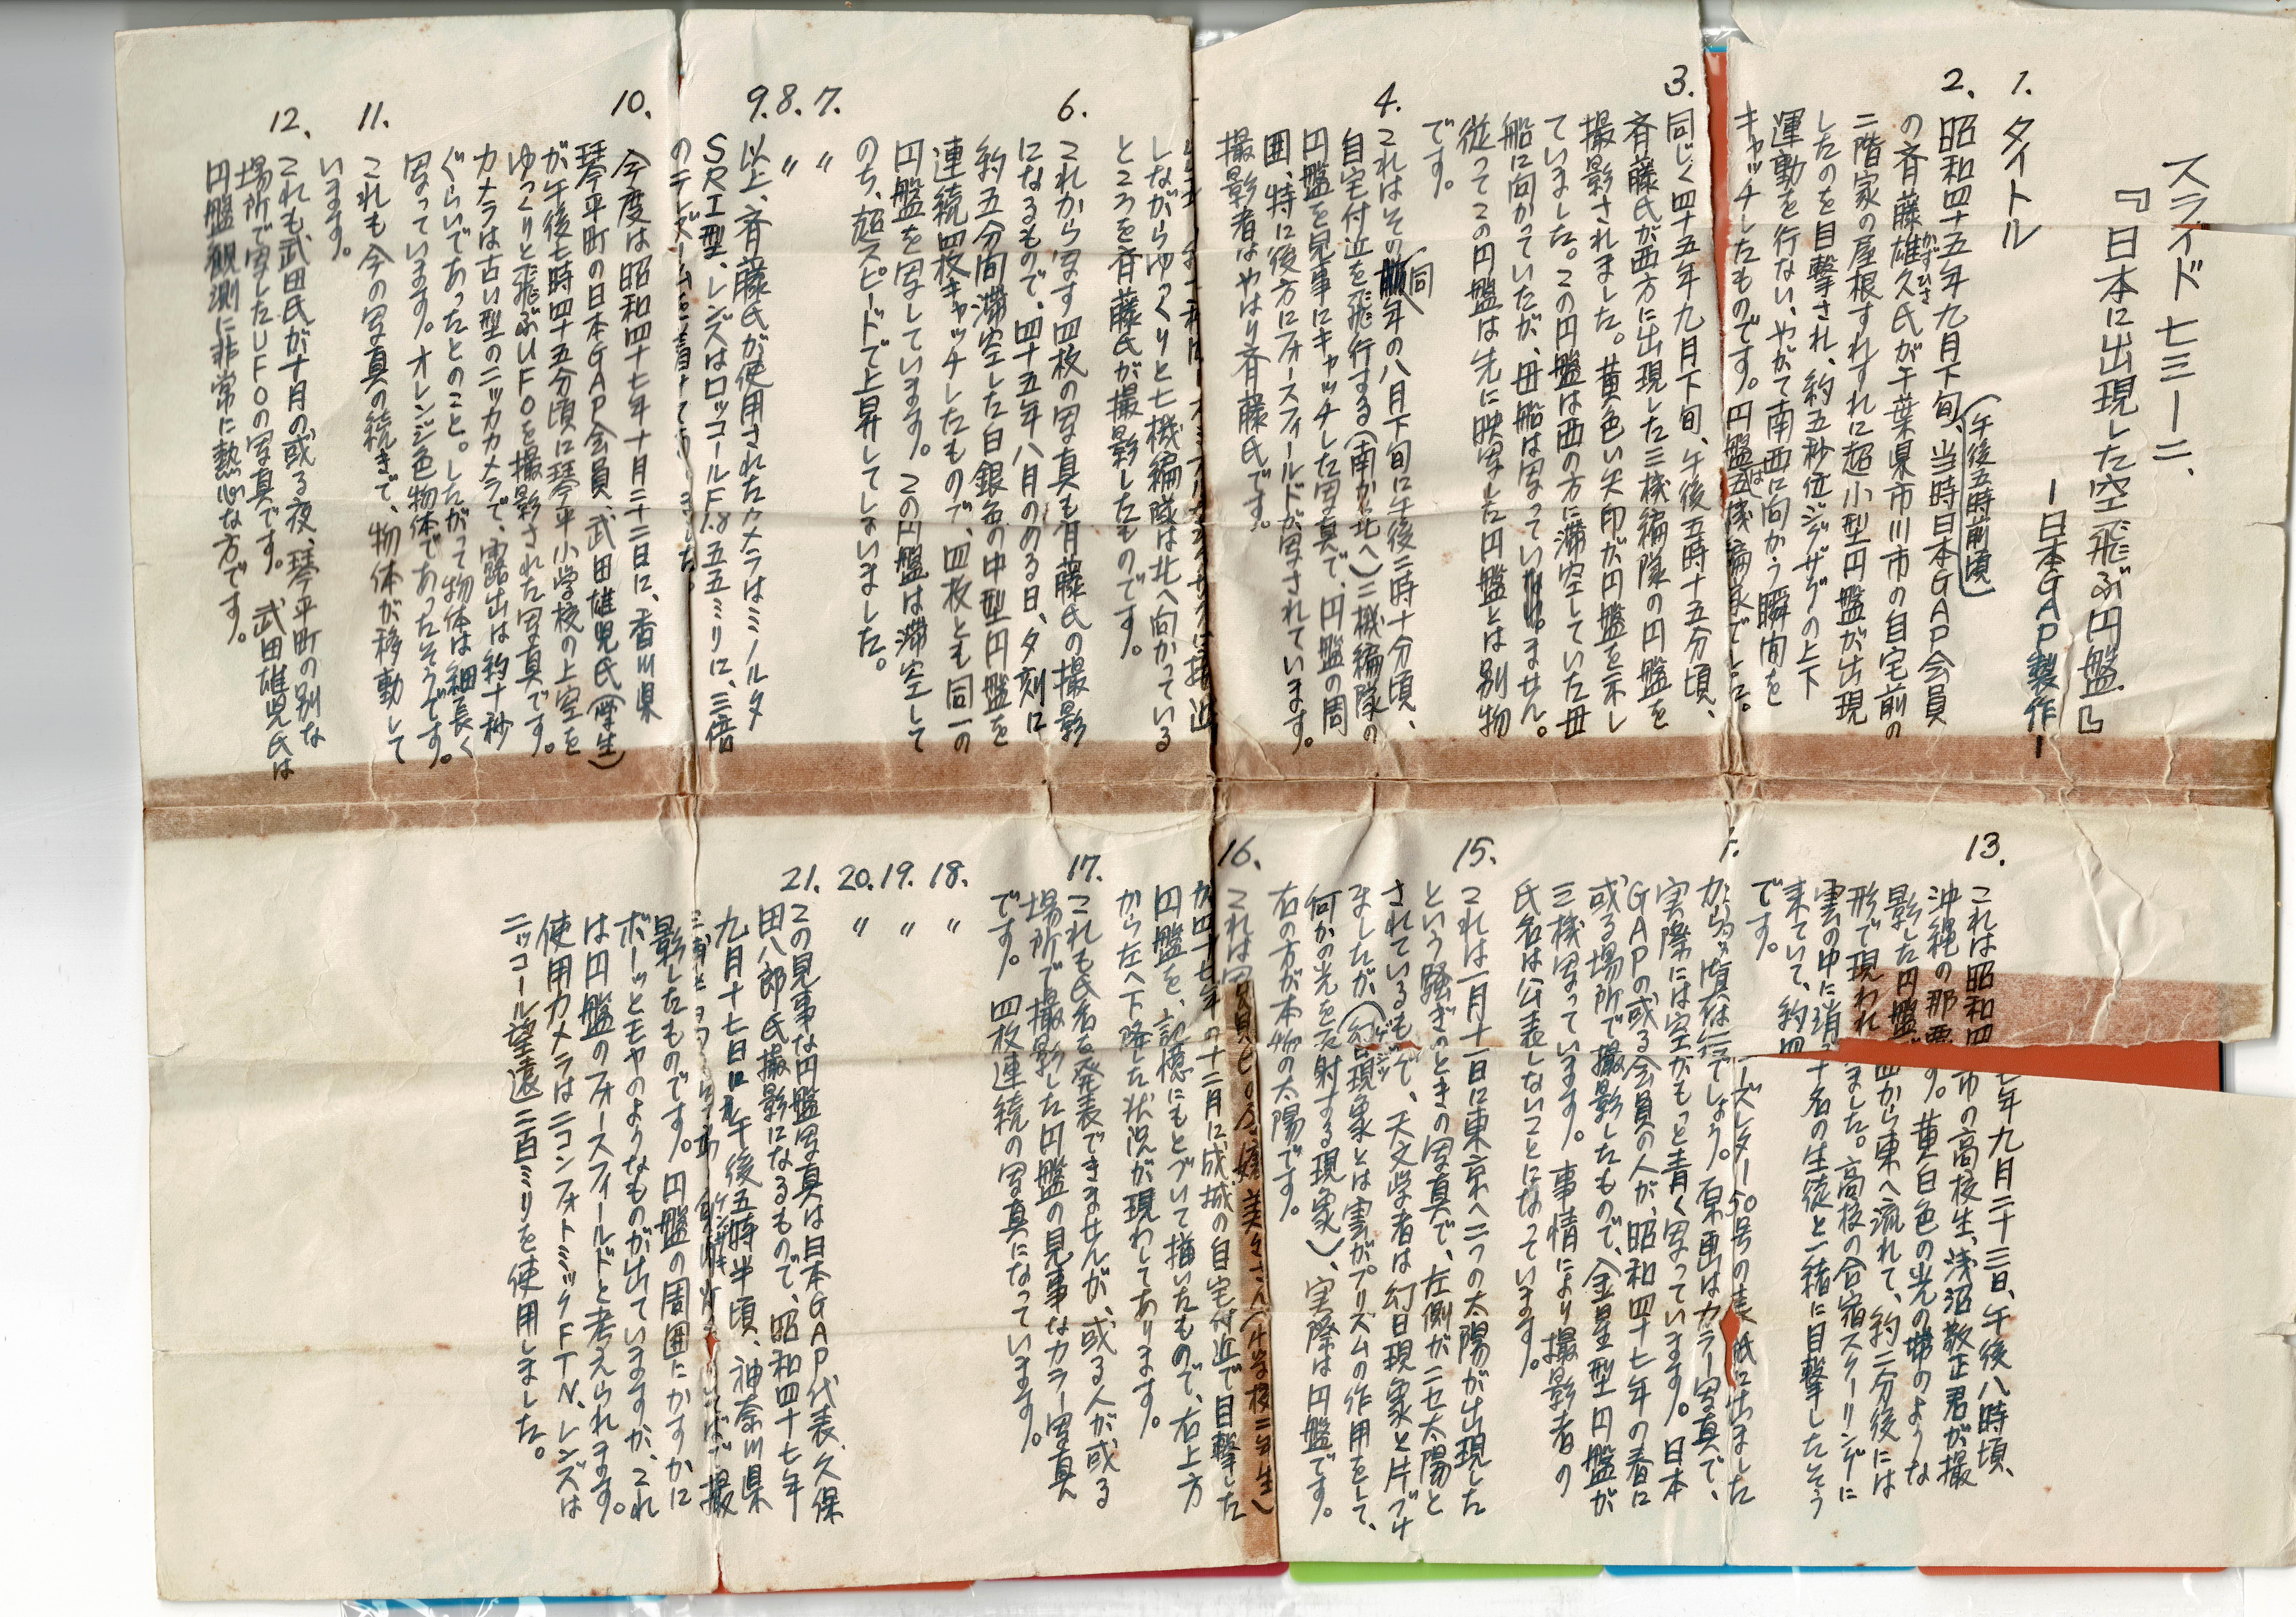 スライド七三ー二、
『日本に出現した空飛ぶ円盤』
ー日本GAP製作ー
1. タイトル
2. 昭和四十五年九月下旬、(午後五時前頃)当時日本GAP会員
の斉藤雄久氏が千葉県市川市の自宅前の
かずひさ
二階家の屋根すれすれに超小型円盤が出現
したのを目撃され、約五秒位ジグザグの上下
運動を行ない、やがて南西に向かう瞬間を
キャッチしたものです。円盤は
3. 同じく四十五年九月下旬、午後五時十五分頃、
斉藤氏が西方に出現した三機編隊の円盤を
撮影されました。黄色い矢印が円盤を示し
ていました。この円盤は西の方に滞空していた母
船に向かっていたが、母船は写っていません。
従ってこの円盤は先に映写した円盤とは別物
です。
4. これはその同年の八月下旬に午後二時十分頃、
自宅付近を飛行する(南から北へ)三機編隊の
円盤を見事にキャッチした写真で、円盤の周
囲、特に後方にフォースフィールドが写されています。
撮影者はやはり斉藤氏です。
しながらゆっくりと七機編隊は北へ向かっている
ところを斉藤氏が撮影したものです。
6. これから写す四枚の写真も斉藤氏の撮影
になるもので、四十五年八月のある日、夕刻に
約五分間滞空した白銀色の中型円盤を
連続四枚キャッチしたもので、四枚とも同一の
円盤を写しています。この円盤は滞空して
のち、超スピードで上昇してしまいました。
7. 〃
8. 〃
9. 以上、斉藤氏が使用されたカメラはミノルタ
SRT型、レンズはロッコールF1.8 五五ミリに、三倍
の
10. 今度は昭和四十七年十月二十二日に、香川県
琴平町の日本GAP会員、武田雄児氏(学生)
が午後七時四十五分頃に琴平小学校の上空を
ゆっくりと飛ぶUFOを撮影された写真です。
カメラは古い型のニッカカメラで、露出は約十秒
ぐらいであったとのこと。したがって物体は細長く
写っています。オレンジ色物体であったそうです。
11. これも今の写真の続きで、物体が移動して
います。
12. これも武田氏が十月の或る夜、琴平町の別な
場所で写したUFOの写真です。武田雄児氏は
円盤観測に非常に熱心な方です。
13. これは昭和四十七年九月二十三日、午後八時頃、
沖縄の那覇市の高校生、浅沼敬正君が撮
影した円盤です。黄白色の光の帯のような
形で現われました。高校の合宿スクーリングに
雲の中に消
来ていて、約四十名の生徒と一緒に目撃したそう
です。
ニューズレター50号の表紙に出ました
から、ご存知でしょう。原画はカラー写真で、
実際には空がもっと青く写っています。日本
GAPの或る会員の人が、昭和四十七年の春に
或る場所で撮影したもので、金星型円盤が
三機写っています。事情により撮影者の
氏名は公表しないことになっています。
15. これは一月十一日に東京へ二つの太陽が出現した
という騒ぎのときの写真で、左側がニセ太陽と
されているもので、天文学者は幻日現象と片づけ
ましたが、(幻日現象とは雲がプリズムの作用をして、
ゲンジツ
何かの光を反射する現象)、実際は円盤です。
右の方が本物の太陽です。
16. これは
が四十七年の十二月に成城の自宅付近で目撃した
円盤を、記憶にもとづいて描いたもので、右上方
から左へ下降した状況が現わしてあります。
17. これも氏名を発表できませんが、或る人が或る
場所で撮影した円盤の見事なカラー写真
です。四枚連続の写真になっています。
18. 〃
19. 〃
20. 〃
21. この見事な円盤写真は日本GAP代表、久保
田八郎氏撮影になるもので、昭和四十七年
九月十七日に午後五時半頃、神奈川県
影したものです。円盤の周囲にかすかに
ボーッとモヤのようなものが出ていますが、これ
は円盤のフォースフィールドと考えられます。
使用カメラはニコンフォトミックFTN、レンズは
ニッコール望遠二百ミリを使用しました。